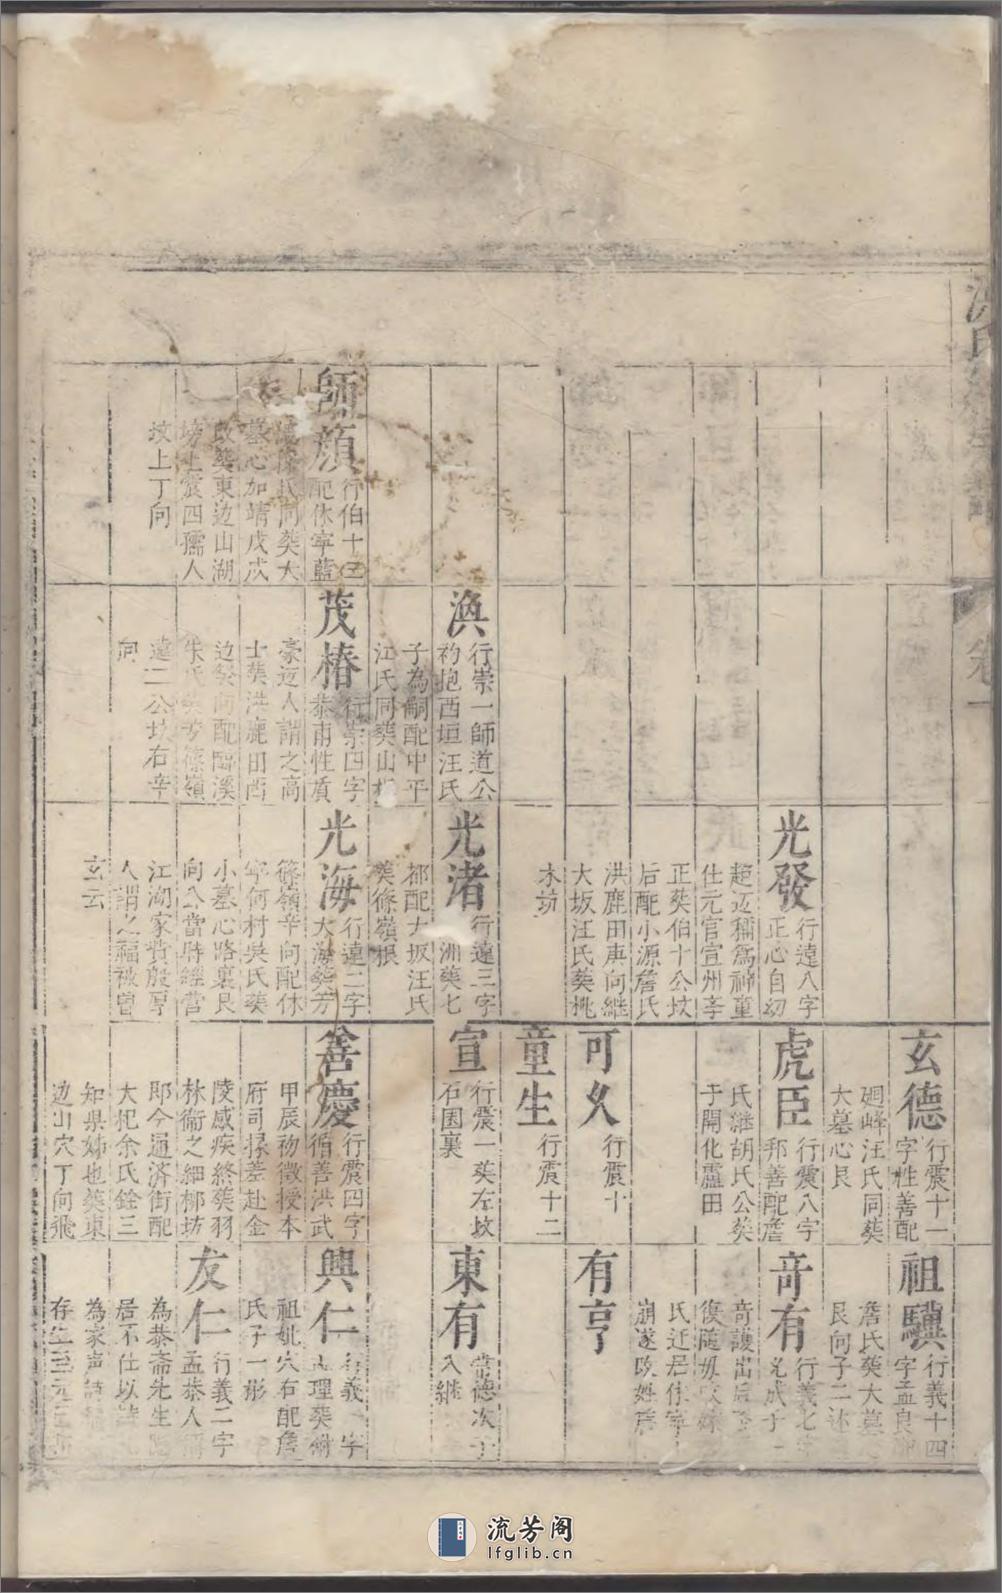 卷一
師頏
行伯十三
配休寧藍
氏同葬大
墓心加靖戊戌
改葬東边山湖
塝上震四孺人
坟上丁向
渙
行崇一師道公
礿抱西垣汪氏
子為嗣配中平
江氏同葬山
茂椿
行崇四字
恭甫性質
豪迈人謂之高
士葬洪鹿田西
边癸向配臨溪
朱氏葬芳篠嶺
遠二公坟右辛
向
光發
行遠八字
正心自幼
超迈稱為神童
仕元官宣州亭
正葬伯十公坟
后配小源詹氏
洪鹿田庚向継
大坂汪氏葬桃
木坊
光渚
行遠三字
淵葬七
都配大坂汪氏
葬篠嶺根
光海
行遠二字
大海葬芳
篠嶺辛向配休
寧何村吳氏葬
小墓心路裏艮
向公當時經営
江湖家貲殷厚
人謂之福被曾
玄云
玄德
行震十一
字性善配
廻峰汪氏同葬
大墓心艮
虎臣
行震八字
邦善配詹
氏継胡氏公葬
于開化盧田
可久
行震十
童生
行震十二
宣
行震一葬左坟
石園裏
善慶
行震四字
循善洪武
甲辰礽徴授本
府司掾差赴金
陵感疾終葬羽
林衞之細柳坊
即今通济街配
大杞余氏銓三
知県姊也葬東
边山穴丁向飛
祖驥
行義十四
字孟良
詹氏葬大墓
艮向子二
竒有
行義七字
成子
竒護出后
復随
氏迁居休寧
崩遂改姓
有亨
東有
常德次子
入継
興仁
行義一字
理葬
祖妣穴右配詹
氏子一彬
友仁
行義二字
孟恭人
為恭斋先生
居不仕以
為家声
存
流芳阁
lfglib.cn